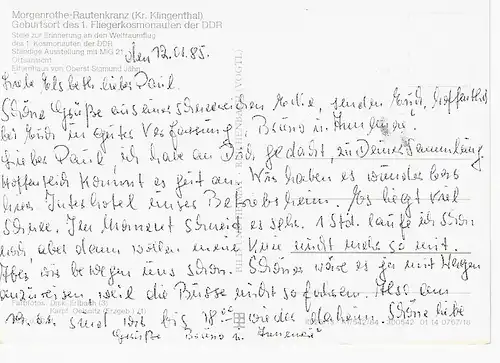 Morgenröthe-Rautenkranz (Kr. Klingenthal)
Geburtsort des 1. Fliegerkosmonauten der DDR
Stele zur Erinnerung an den Weltraumflug
des 1. Kosmonauten der DDR
Ständige Ausstellung mit MIG 21
Ortsansicht
Elternhaus von Oberst Sigmund Jähn
den 12.01.85.
Liebe Elsbeth, lieber Paul.
Schöne Grüße aus einer schneereichen senden Euch, hoffentlich
bei Euch in guter Verfassung, Bruno u.
Lieber Paul, ich habe an Dich gedacht, zu Deiner Sammlung.
Hoffentlich kommt es gut an. Wir haben es wunderbar
hier Interhotel unser Betriebsheim. Es liegt viel
Schnee. Im Moment schneit es sehr. 1 Std. laufe ich schon
noch, aber dann wollen meine Knie nicht mehr so mit.
Aber wir bewegen uns schon. Schöner wäre es ja mit Wagen
anzureisen weil die Busse nicht so fahren. Also am
sind wir bis 18 wieder daheim. Schöne liebe
Grüße Bruno u.